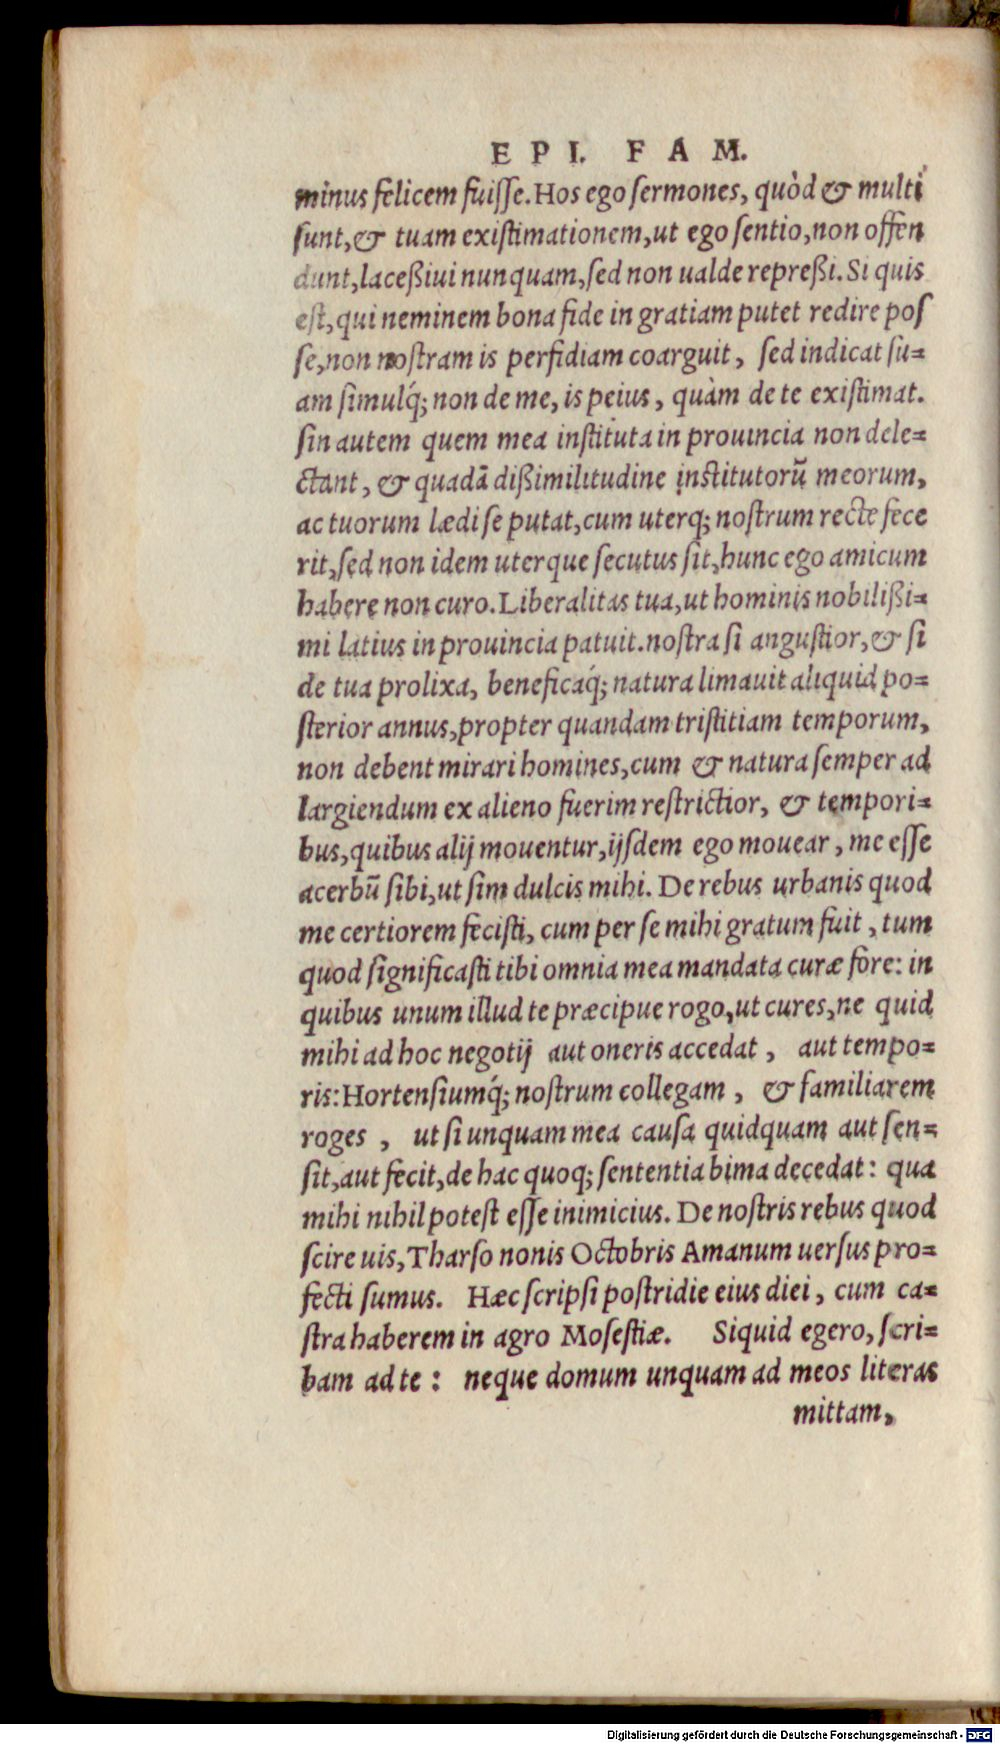 EPI. FAM.
minus felicem fuiſſe. Hos ego ſermones, quòd & multi
ſunt, & tuam exiſtimationem, ut ego ſentio, non offen
dunt, laceßiui nunquam, ſed non ualde repreßi. Si quis
eſt, qui neminem bona fide in gratiam putet redire poſ
ſe, non noſtram is perfidiam coarguit, ſed indicat ſu=
am ſimulq́; non de me, is peius, quàm de te exiſtimat.
ſin autem quem mea inſtituta in prouincia non dele=
ctant, & quadã dißimilitudine inſtitutorũ meorum,
ac tuorum lædi ſe putat, cum uterq; noſtrum recte fece
rit, ſed non idem uterque ſecutus ſit, hunc ego amicum
habere non curo. Liberalitas tua, ut hominis nobilißi=
mi latius in prouincia patuit. noſtra ſi anguſtior, & ſi
de tua prolixa, beneficaq́; natura limauit aliquid po=
ſterior annus, propter quandam triſtitiam temporum,
non debent mirari homines, cum & natura ſemper ad
largiendum ex alieno fuerim reſtrictior, & tempori=
bus, quibus alij mouentur, ijſdem ego mouear, me eſſe
acerbũ ſibi, ut ſim dulcis mihi. De rebus urbanis quod
me certiorem feciſti, cum per ſe mihi gratum fuit, tum
quod ſignificaſti tibi omnia mea mandata curæ fore: in
quibus unum illud te præcipue rogo, ut cures, ne quid
mihi ad hoc negotij aut oneris accedat, aut tempo=
ris: Hortenſiumq́; noſtrum collegam, & familiarem
roges, ut ſi unquam mea cauſa quidquam aut ſen=
ſit, aut fecit, de hac quoq; ſententia bima decedat: qua
mihi nihil poteſt eſſe inimicius. De noſtris rebus quod
ſcire uis, Tharſo nonis Octobris Amanum uerſus pro=
fecti ſumus. Hæc ſcripſi poſtridie eius diei, cum ca=
ſtra haberem in agro Moſeſtiæ. Siquid egero, ſcri=
bam ad te: neque domum unquam ad meos literas
mittam,
Digitalisierung gefördert durch die Deutsche Forschungsgemeinschaft - DFG